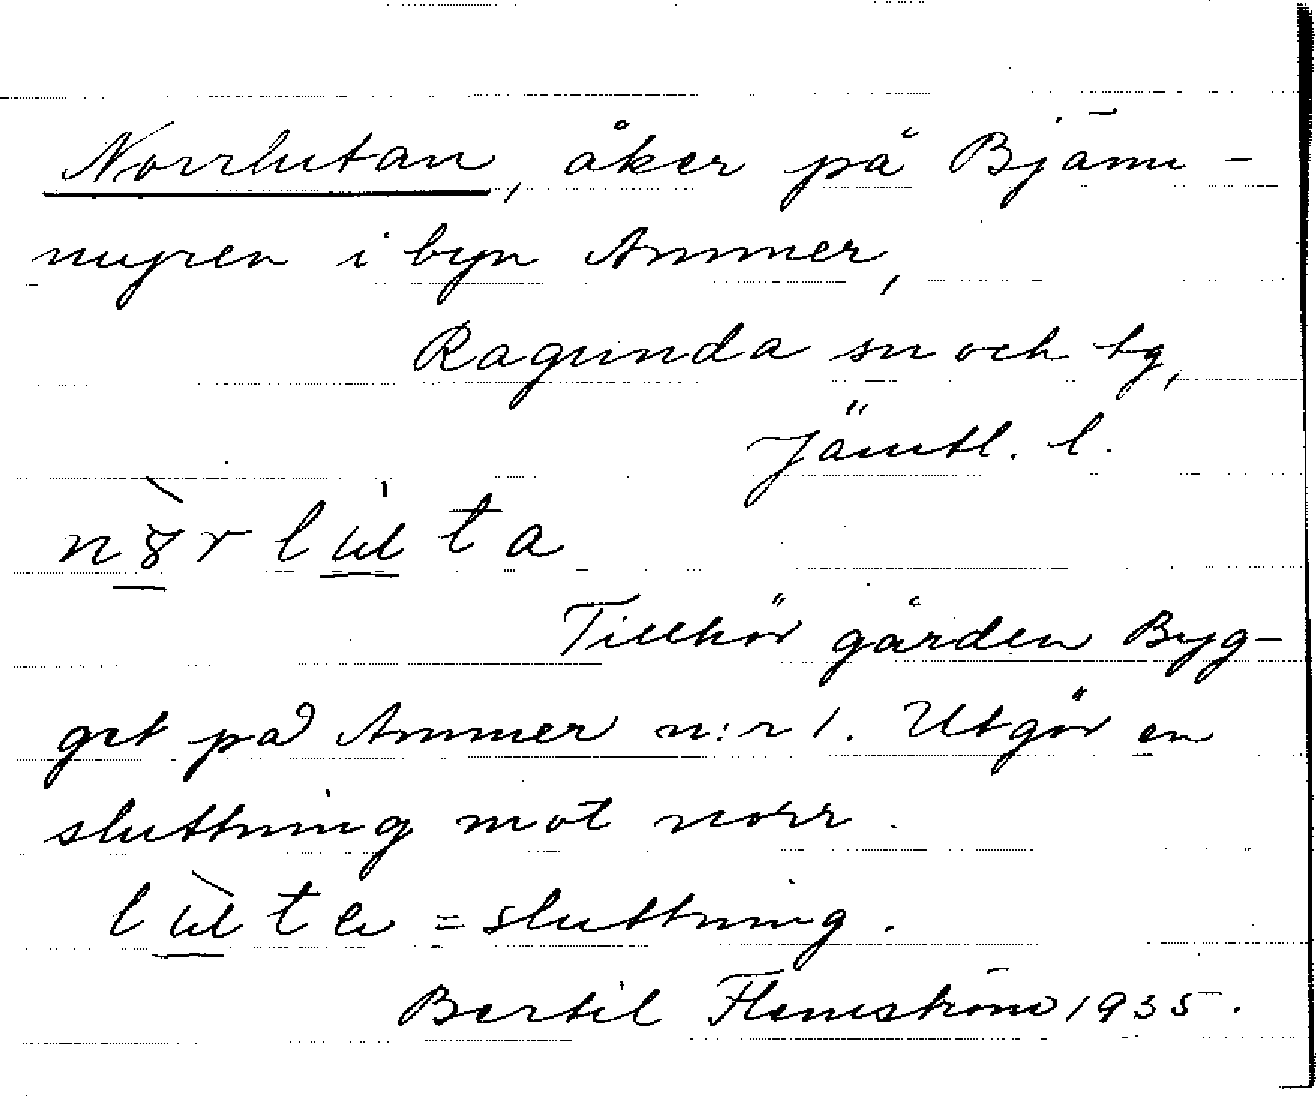 Norrlutan, åker på Bjäm-
myren i byn Ammer,
Ragunda sn och tg,
Jämtl. l.
Tillhör gården Byg-
get på Ammer n:r 1. Utgör en
sluttning mot norr.
= sluttning.
Bertil Flemström 1935.